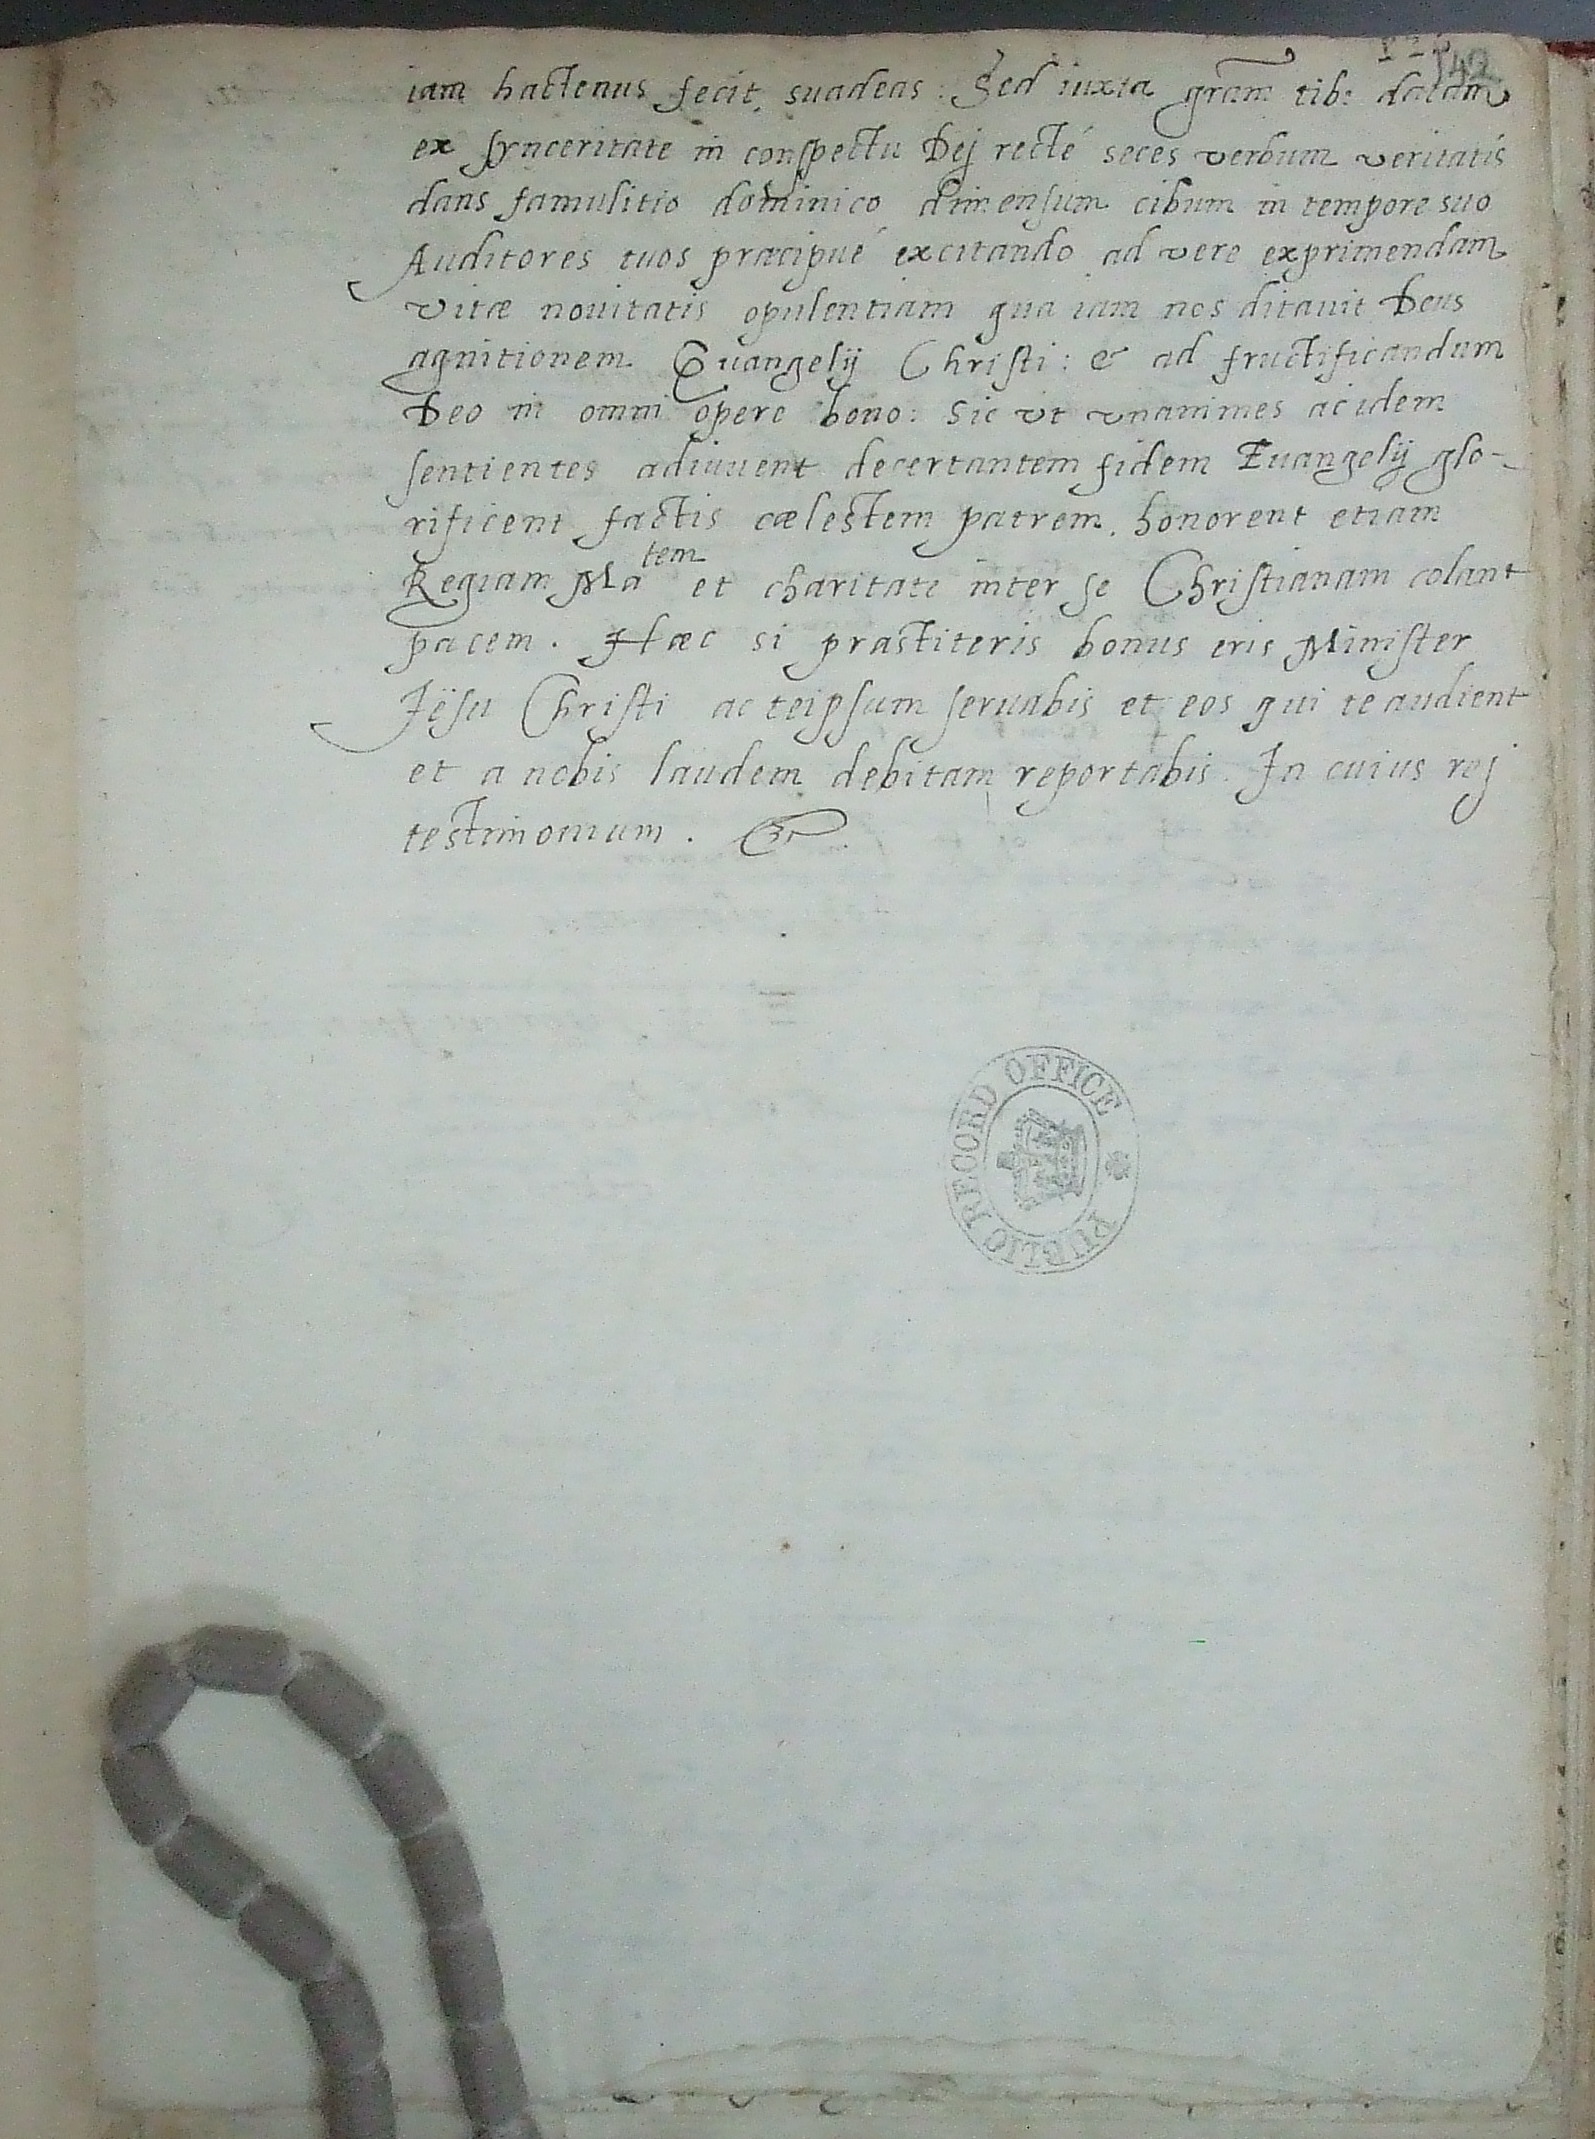 142
iam hactenus fecit, suadeas: Sed iuxta gram̃ tibi datam
ex synceritate in conspectu Dej recté seces verbum veritatis
dans famulitio dominico dimensum cibum in tempore suo
Auditores tuos præcipué excitando ad vere exprimendam
vitæ nouitatis opulentiam qua iam nos ditauit Deus
agnitionem Euangelij Christi: & ad fructificandum
Deo in omni opere bono: Sic vt vnanimes ac idem
sentientes adiuuent decertantem fidem Euangelij glo-
rificent factis cælestem patrem, honorent etiam
Regiam Ma^tem et charitate inter se Christianam colant
pacem. Hæc si præstiteris bonus eris Minister
Jësu Christi ac teipsum seruabis et eos qui te audient
et a nobis laudem debitam reportabis. In cuius rej
testimonium. &c.
PUBLIC RECORD OFFICE